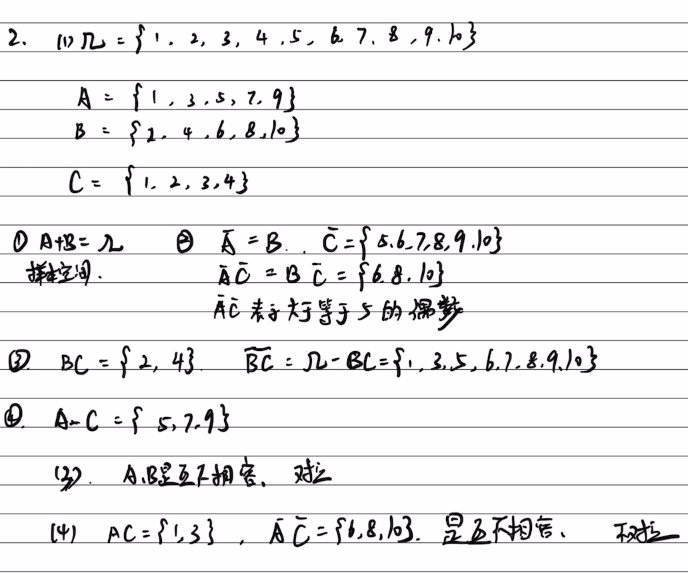 2. (1) Ω = {1. 2, 3, 4, 5, 6 7, 8, 9.10}
A = {1, 3, 5, 7, 9}
B = {2, 4, 6, 8, 10}
C = {1. 2, 3, 4}
① A+B = Ω ② Ā = B. C̄ = {5.6.7.8.9.10}
样本空间. ĀC̄ = BC̄ = {6.8.10}
ĀC̄ 表示大于等于5的偶数
③ BC = {2, 4}. \overline{BC} = Ω - BC = {1, 3, 5, 6.7.8.9.10}
④ A-C = {5, 7.9}
(3). A.B是互不相容、对立
(4) AC = {1,3}, ĀC̄ = {6,8,10}. 是互不相容、不对立